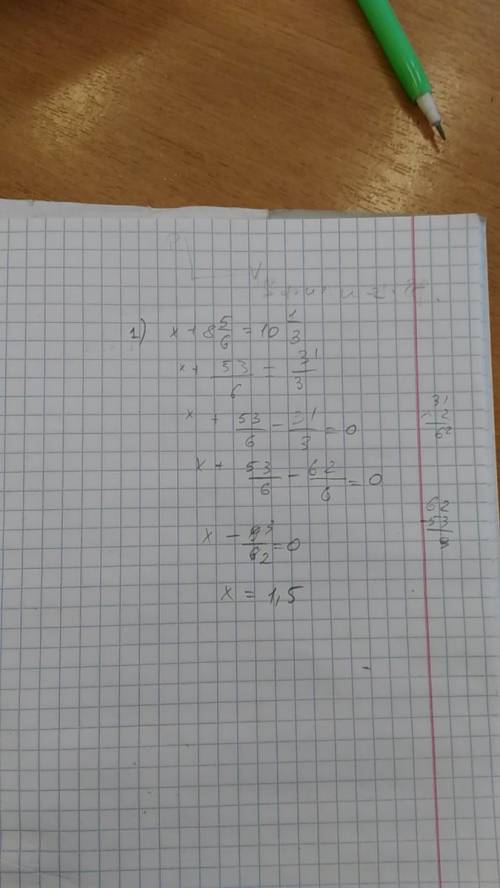 1) x + 8 5/6 = 10 1/3
x + 53/6 = 31/3
x + 53/6 - 31/3 = 0
x + 53/6 - 62/6 = 0
x - 9 3/6 2 = 0
x = 1,5
31
× 2
62
62
- 53
9